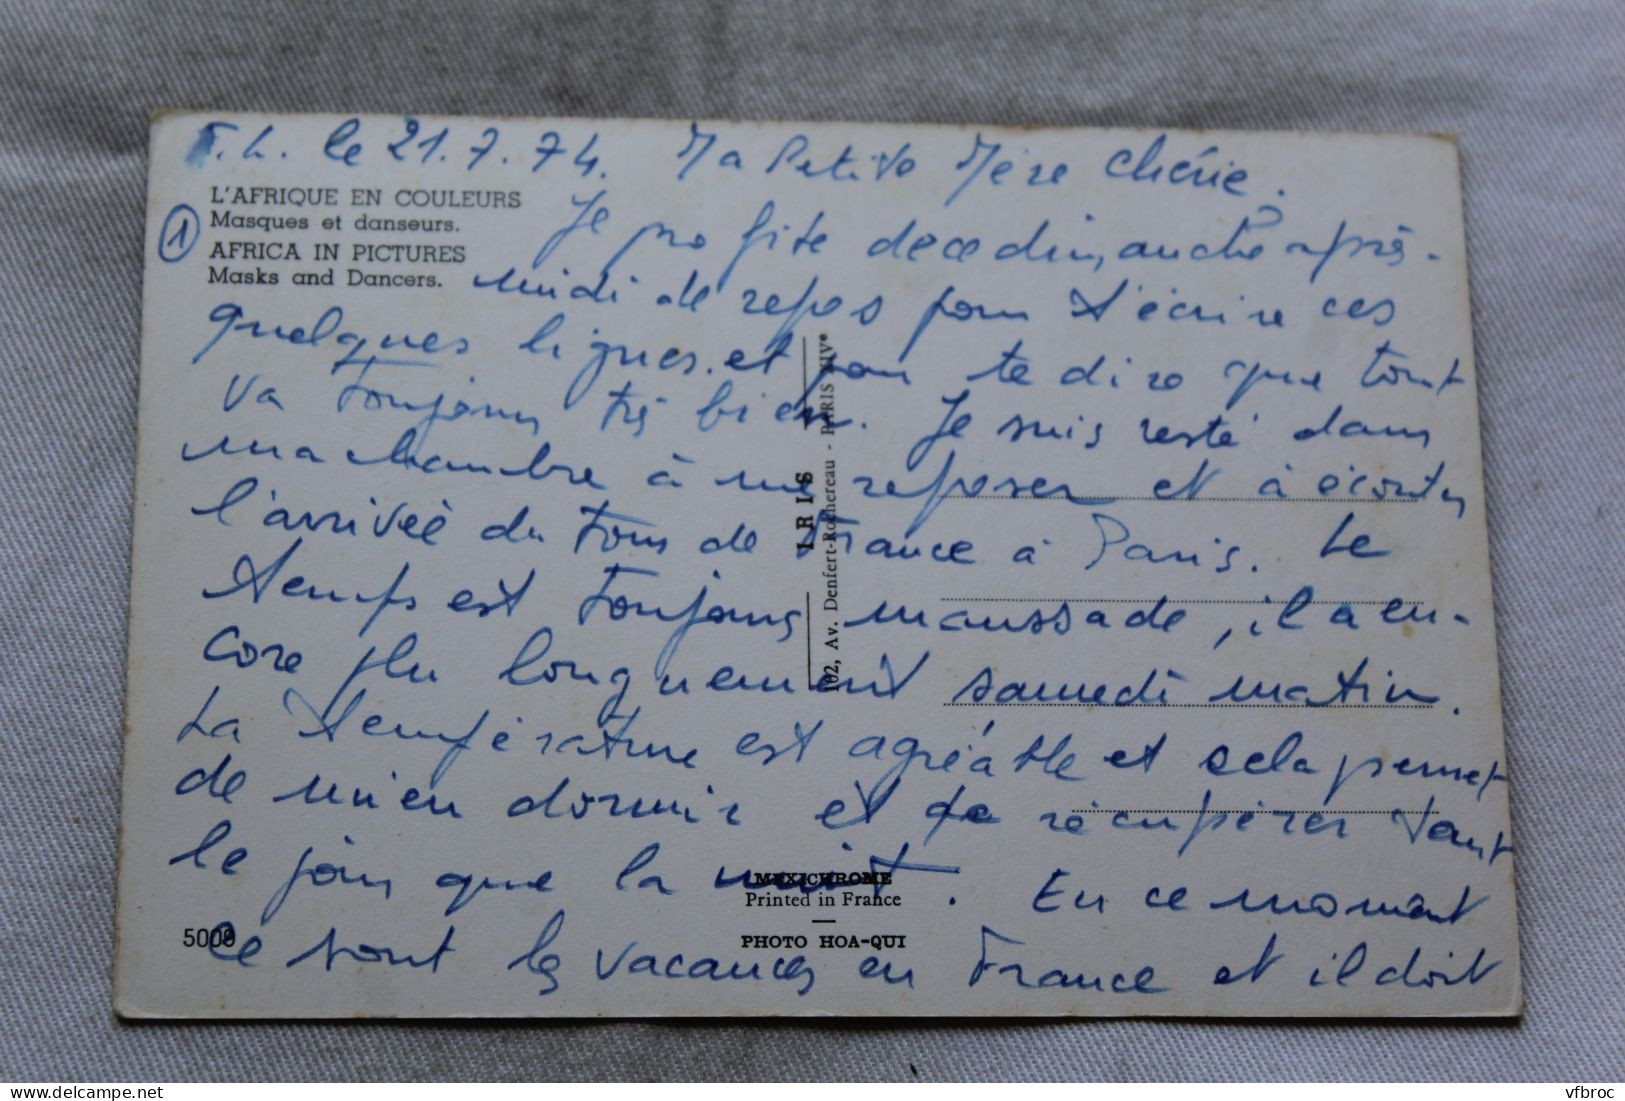 F.L. le 21.7.74. Ma Petite Mère chérie.
L'AFRIQUE EN COULEURS
Masques et danseurs.
AFRICA IN PICTURES
Masks and Dancers.
1
Je profite de ce dimanche après-
midi de repos pour t'écrire ces
quelques lignes et pour te dire que tout
va toujours très bien. Je suis resté dans
ma chambre à me reposer et à écouter
l'arrivée du Tour de France à Paris. Le
temps est toujours maussade, il a en-
core plu longuement samedi matin.
La température est agréable et cela permet
de mieux dormir et de récupérer tant
le jour que la nuit. En ce moment
ce sont les vacances en France et il doit
IRIS
102, Av. Denfert-Rochereau - PARIS XIVe
MEXICHROME
Printed in France
PHOTO HOA-QUI
5009
vfbroc